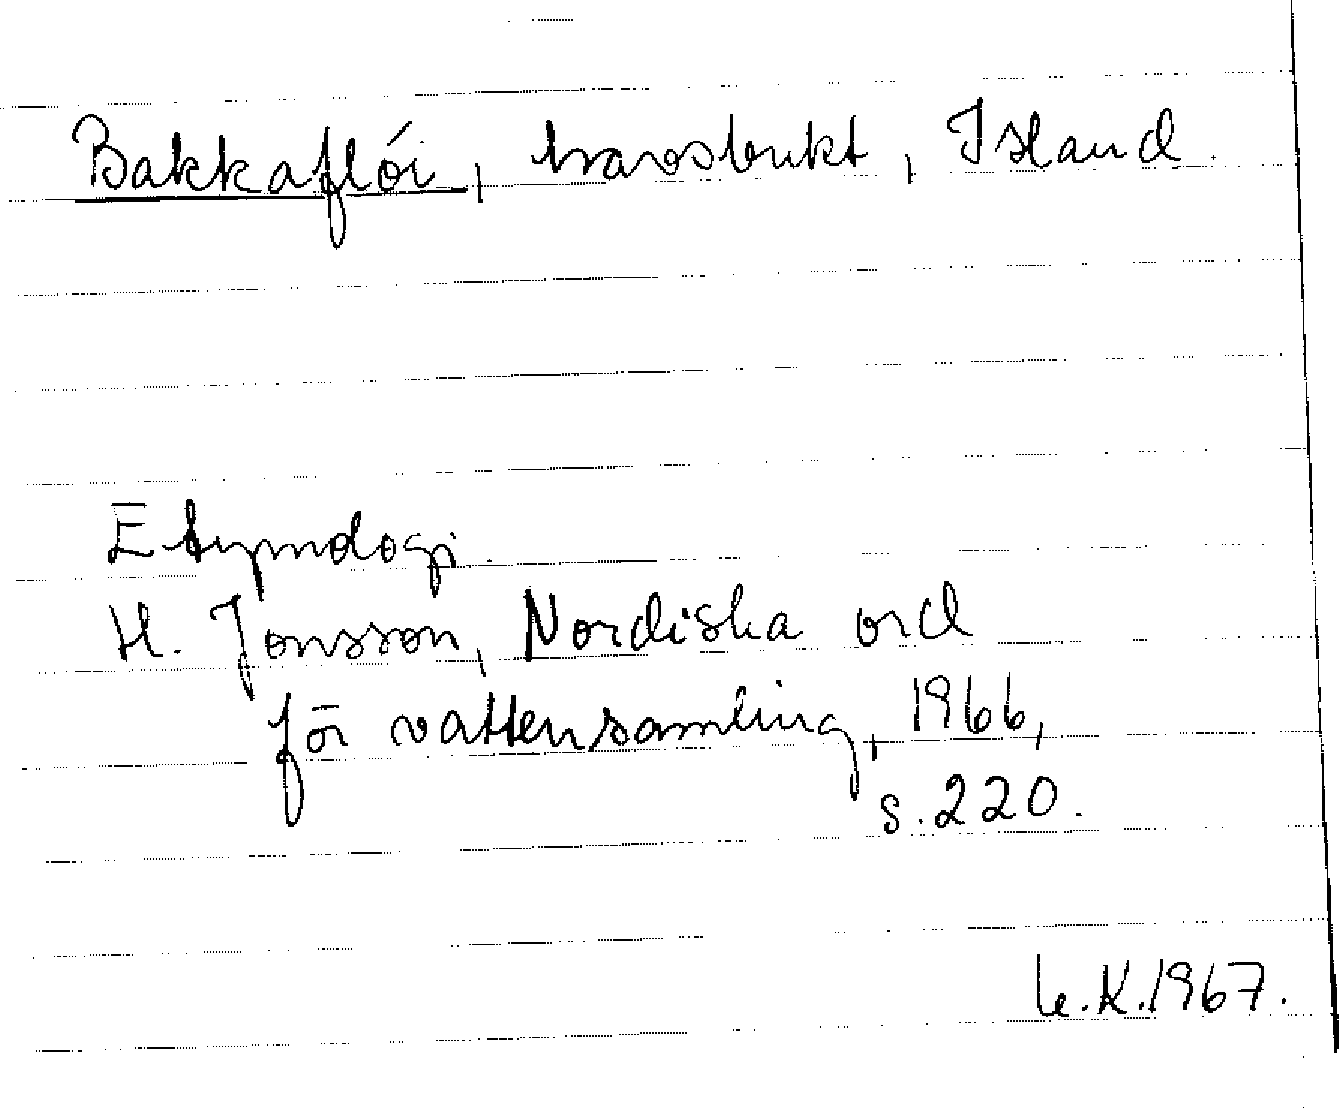 Bakkaflói, havsbukt, Island.
Etymologi.
H. Jonsson, Nordiska ord
för vattensamling, 1966,
s. 220.
K. 1967.